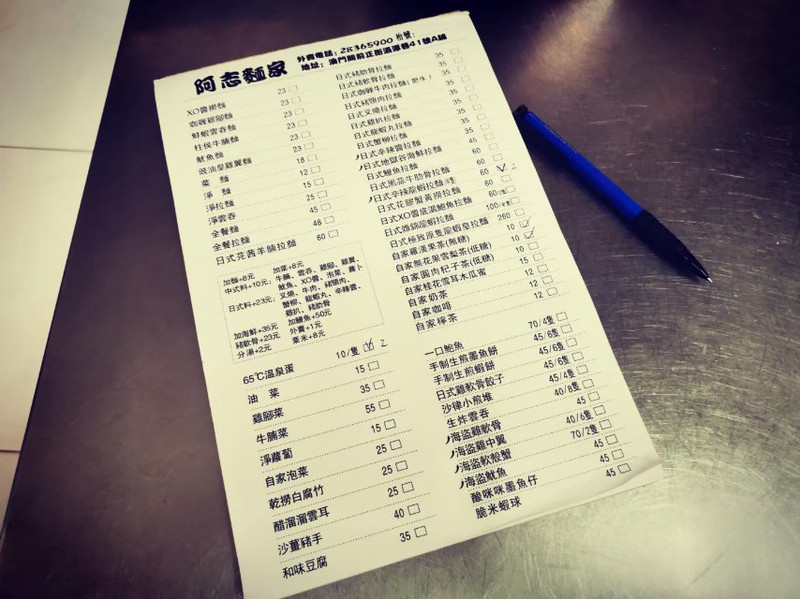 阿志麵家
外賣電話：28365900 枱號：
地址：澳門關前正街酒潭巷41號A鋪
XO醬撈麵 23
咖喱雞腳麵 23
鮮蝦雲吞麵 23
柱侯牛腩麵 23
魷魚麵 23
豉油皇雞翼麵 23
菜 麵 18
淨 麵 12
淨拉麵 15
淨雲吞 25
全餐麵 45
全餐拉麵 48
日式芫茜羊腩拉麵 60
加麵+8元 加菜+8元
中式料+10元：牛腩、雲吞、雞腳、雞翼、
魷魚、XO醬、泡菜、蘿卜
日式料+23元：叉燒、牛肉、豬頸肉、
蟹柳、龍蝦丸、辛辣醬、
雞扒、豬肋骨
加海鮮+35元 加鰻魚+50元
豬軟骨+23元 外賣+1元
分湯+2元 粟米+8元
65℃溫泉蛋 10/隻 2
油 菜 15
雞腳菜 35
牛腩菜 55
淨蘿蔔 15
自家泡菜 25
乾撈白腐竹 25
醋溜溜雲耳 25
沙薑豬手 40
和味豆腐 35
日式豬肋骨拉麵 35
日式豬軟骨拉麵
日式咖喱牛肉拉麵 35
日式豬頸肉拉麵 35
日式叉燒拉麵 35
日式雞扒拉麵 35
日式龍蝦丸拉麵 35
日式蟹柳拉麵 35
日式辛辣醬拉麵 35
日式地獄谷海鮮拉麵 45
日式鰻魚拉麵 60
日式黑蒜牛肋骨拉麵 60
日式辛辣龍蝦拉麵 60
日式花膠蟹黃撈拉麵 60
日式XO醬底溫鮑魚拉麵 60
日式酒錦龍蝦拉麵 100
日式極致原隻龍蝦皇拉麵 260
自家羅漢果茶(無糖) 10
自家無花果雪梨茶(低糖) 10
自家圓肉杞子茶(低糖) 10
自家桂花雪耳木瓜蜜 15
自家奶茶 12
自家咖啡 12
自家檸茶 12
一口鮑魚 70/4隻
手制生煎墨魚餅 45/6隻
手制生煎蝦餅 45/6隻
日式雞軟骨餃子 45/6隻
沙律小煎堆 45/4隻
生炸雲吞 40/8隻
海盜雞軟骨 45
海盜雞中翼 40/6隻
海盜軟殼蟹 70/2隻
海盜魷魚 45
酸咪咪墨魚仔 45
脆米蝦球 45